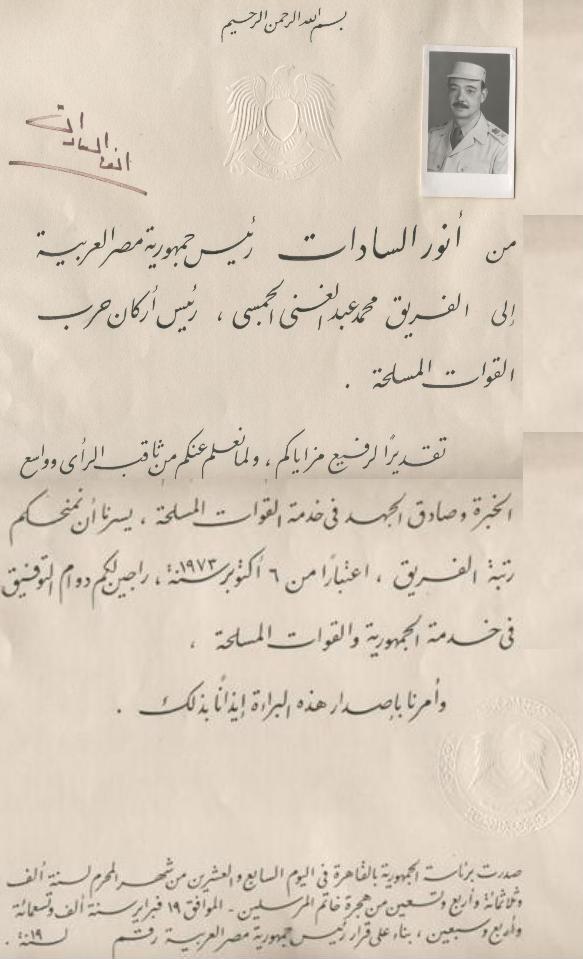 بسم الله الرحمن الرحيم
أنور السادات
من أنور السادات رئيس جمهورية مصر العربية
إلى الفريق محمد عبد الغنى الجمسى ، رئيس أركان حرب
القوات المسلحة .
تقديرًا لرفيع مزاياكم ، ولما نعلم عنكم من ثاقب الرأى وواسع
الخبرة وصادق الجهد فى خدمة القوات المسلحة ، يسرنا أن نمنحكم
رتبة الفريق ، اعتبارًا من ٦ أكتوبر سنة ١٩٧٣ ، راجين لكم دوام التوفيق
فى خدمة الجمهورية والقوات المسلحة ،
وأمرنا بإصدار هذه البراءة إيذانًا بذلك .
صدرت برئاسة الجمهورية بالقاهرة فى اليوم السابع والعشرين من شهر المحرم لسنة ألف
وثلاثمائة وأربع وتسعين من هجرة خاتم المرسلين - الموافق ١٩ فبراير سنة ألف وتسعمائة
وأربع وسبعين ، بناء على قرار رئيس جمهورية مصر العربية رقم لسنة ١٩ .